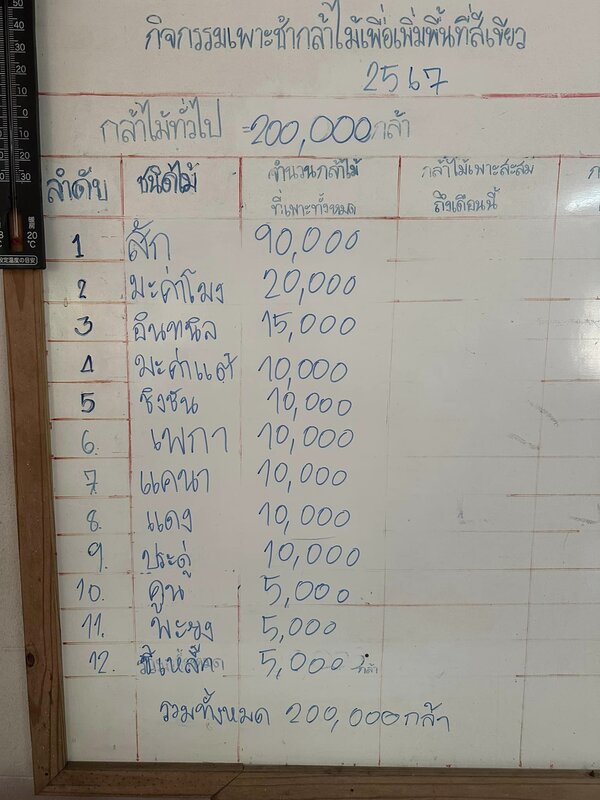 กิจกรรมเพาะชำกล้าไม้เพื่อเพิ่มพื้นที่สีเขียว
2567
กล้าไม้ทั่วไป =200,000กล้า
ลำดับ ชนิดไม้ จำนวนกล้าไม้ที่เพาะทั้งหมด กล้าไม้เพาะสะสมถึงเดือนนี้
1 สัก 90,000
2 มะค่าโมง 20,000
3 อินทนิล 15,000
4 มะค่าแต้ 10,000
5 ชิงชัน 10,000
6. เพกา 10,000
7 แคนา 10,000
8. แดง 10,000
9. ประดู่ 10,000
10. คูน 5,000
11. พะยูง 5,000
12. ขี้เหล็ก 5,000 กล้า
รวมทั้งหมด 200,000กล้า
50
40
30
20
10
0
10
20
30
20
°C
°C
設定温度の目安